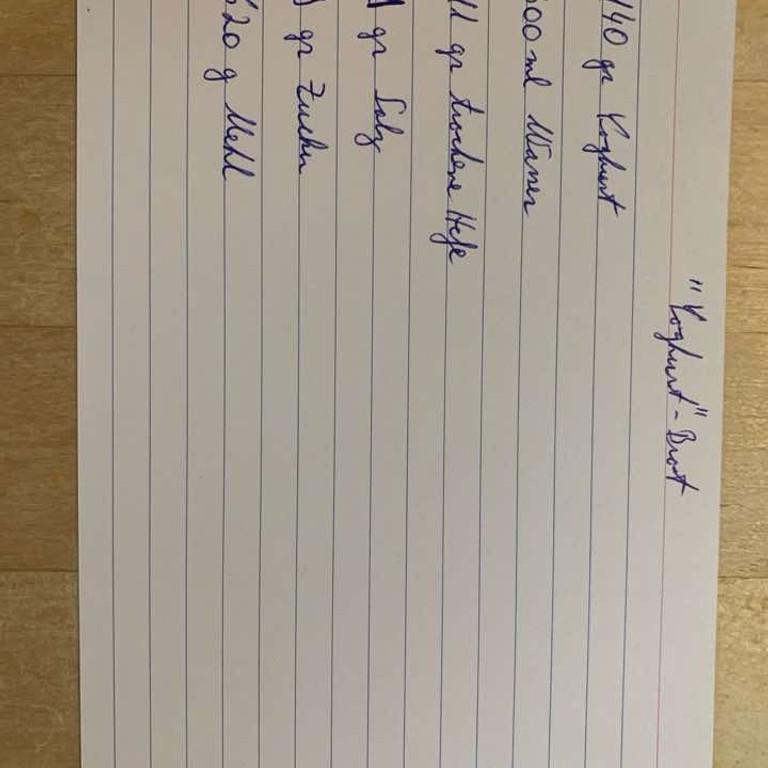 "Yoghurt"-Brot
140 gr Yoghurt
ml Wasser
11 gr trockene Hefe
gr Salz
gr Zucker
g Mehl